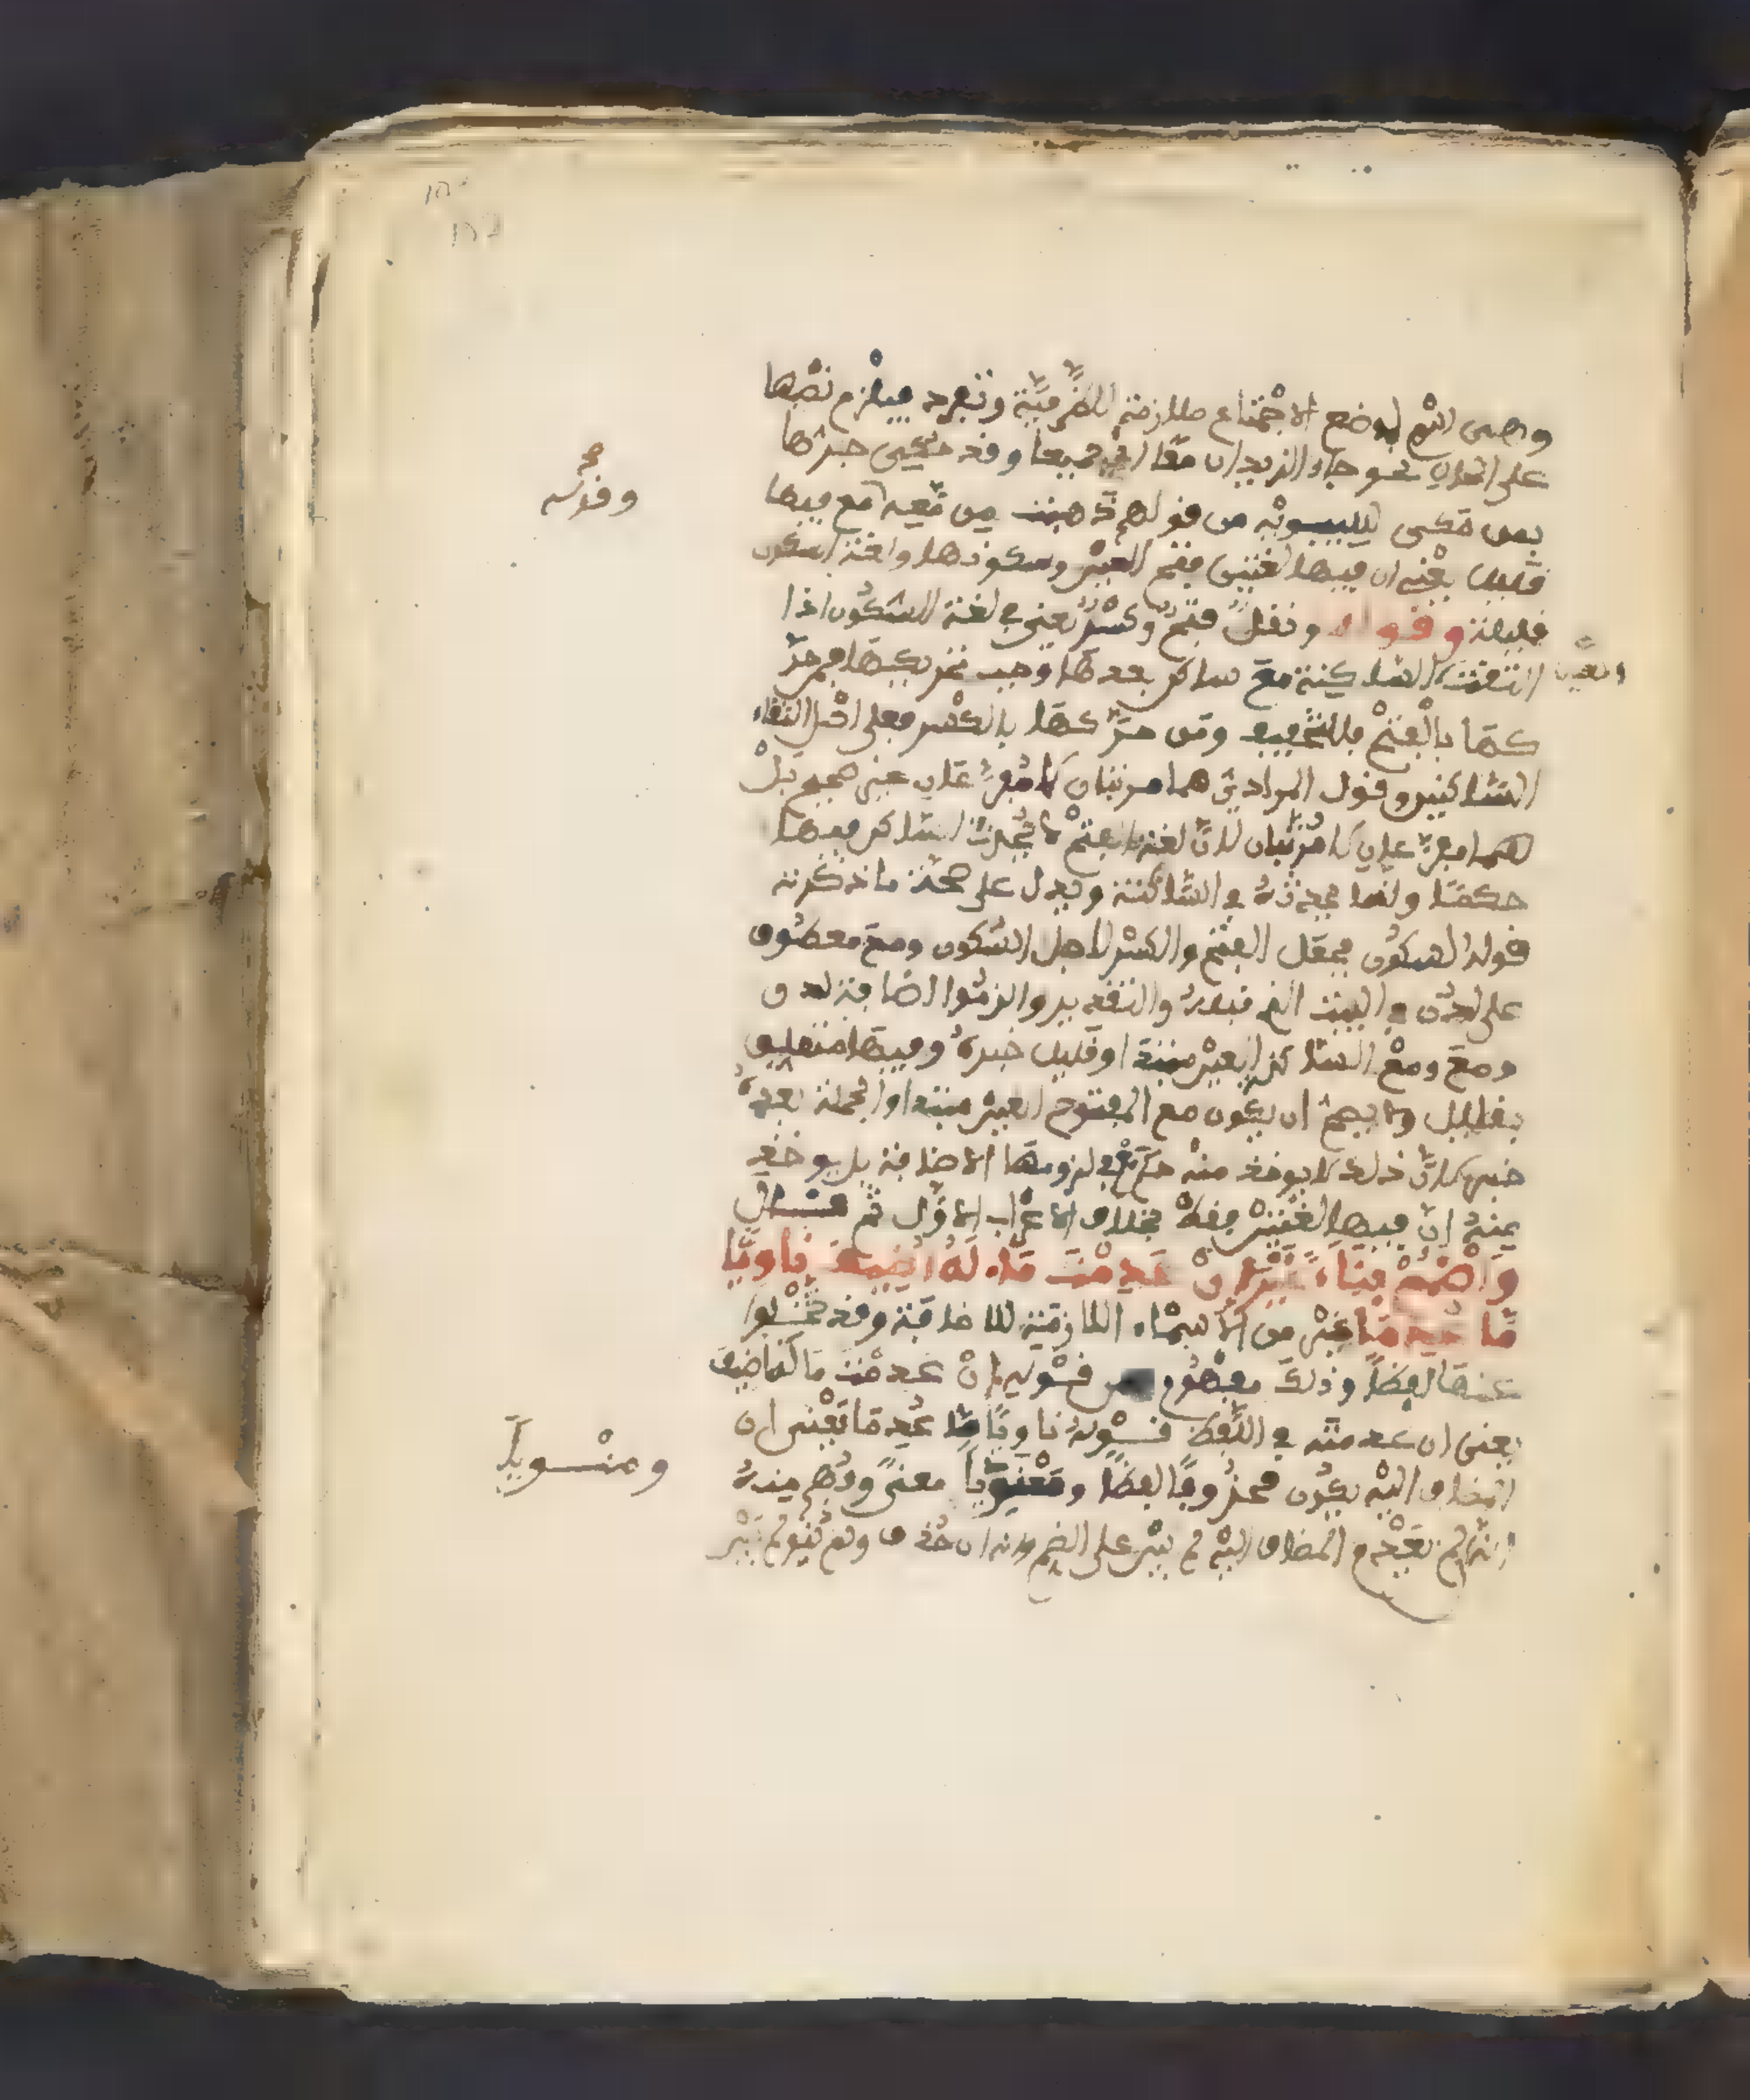 وهى اسم لموضع الاجتماع ملازمة للظرفية وتفرد فيلزم نصبها
على الحال نحو جاء الزيدان معا اى جميعا وقد حكى جرها
بمن حكى سيبويه من قولهم ذهبت من معه مع فيها
قليل يعنى ان فيها لغتين فتح العين وسكونها ولغة السكون
قليلة وقوله ونقل فتح وكسر يعنى فى لغة السكون اذا
التقت العين الساكنة مع ساكن بعدها وجب تحريكها فمن حر
كها بالفتح فللتخفيف ومن حركها بالكسر فعلى اصل التقاء
الساكنين وقول المرادى هما مرتبان لا مفرعان عنى صحيح بل
هما مفرعان لا مرتبان لان لغة الفتح لا يحرك الساكن فيها
حكمتا وانما يحرك فى الساكنة ويدل على صحة ما ذكرته
قوله لسكون فجعل الفتح والكسر لاجل السكون ومع معطوف
على لدن فى البيت الذى قبله والتقدير والزموا اضافة لدن
ومع ومع الساكن العين مبتدأ وقليل خبره وفيها متعلق
بقليل ولا يصح ان يكون مع المفتوح العين مبتدا والجملة بعده
خبر لان ذلك لا يوخذ منه حكم مع فى لزومها الاضافة بل يوخذ
منه ان فيها لغتين فقط بخلاف الاعراب الاول ثم قال
واضمم بناء غيرا ان عدمت ما له اضيف ناويا
ما عدما غير من الاسماء اللازمة للاضافة وقد تخلو
عنها لفظا وذلك مفهوم من قوله ان عدمت ما له اضيف
يعنى ان عدمته فى اللفظ وقوله ناويا ما عدما يعنى ان
المضاف اليه يكون محذوفا لفظا ومنويا معنى وفهم منه
انه ان لم يعدم المضاف اليه لم يبن على الضم وانه ان حذف ولم ينو لم يبن
وقوله صح
العين
ومنويا